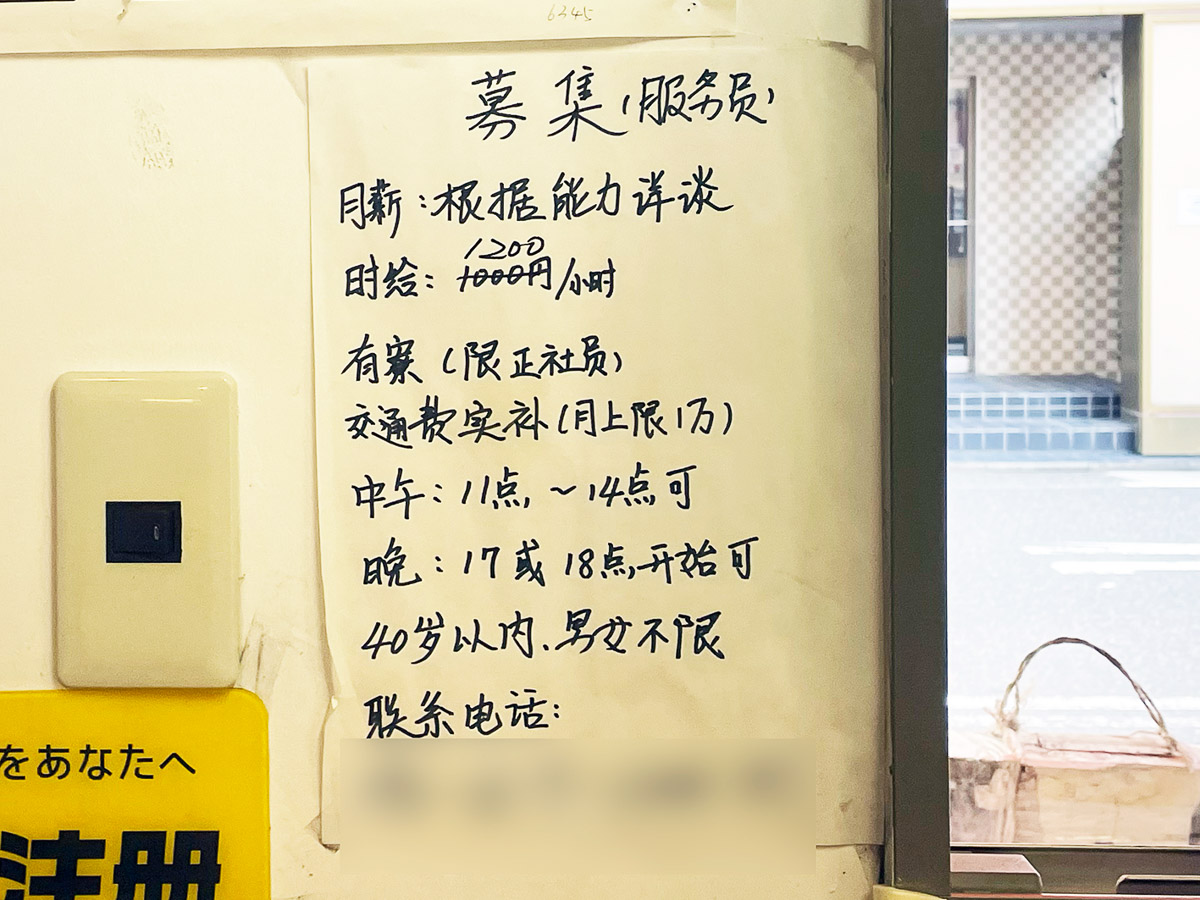 6345
募集(服务员)
月薪:根据能力详谈
1200
时给: 1000円/小时
有寮(限正社员)
交通费实补(月上限1万)
中午:11点~14点可
晚:17或18点开始可
40岁以内.男女不限
联系电话:
をあなたへ
注册